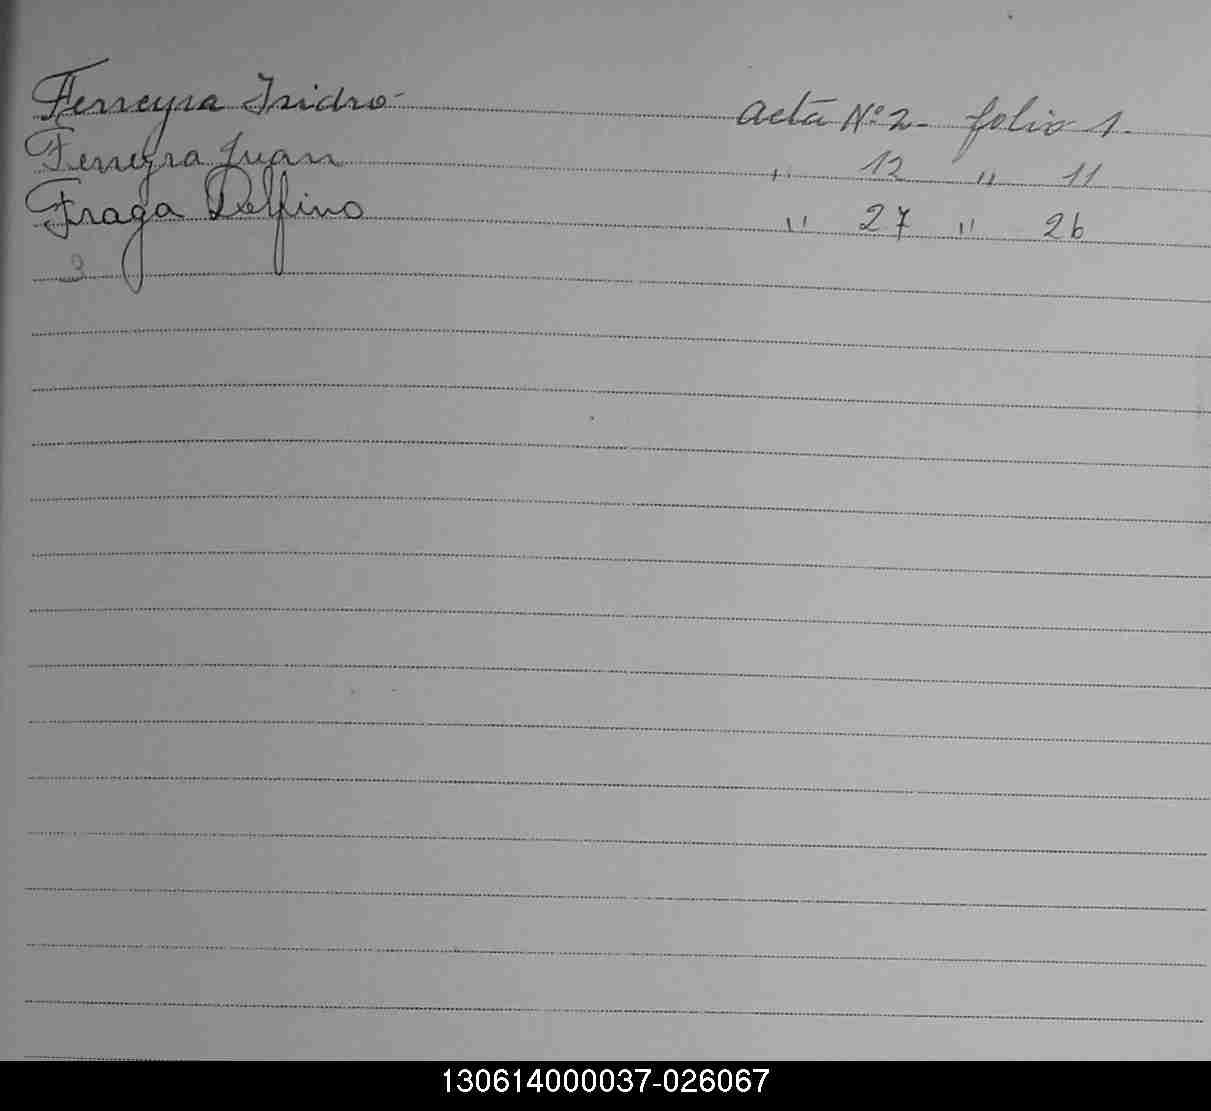 Ferreyra Isidro- acta Nº 2- folio 1.
Ferreyra Juan " 12 " 11
Fraga Delfino " 27 " 26
3
130614000037-026067